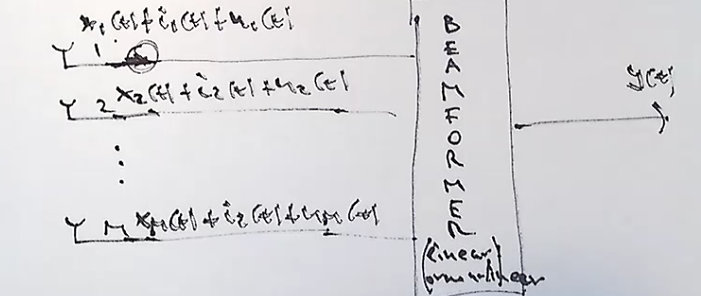 1 x₁(t)+i₁(t)+n₁(t)
2 x₂(t)+i₂(t)+n₂(t)
M x_M(t)+i₂(t)+n_M(t)
BEAMFORMER
(linear
or nonlinear
y(t)